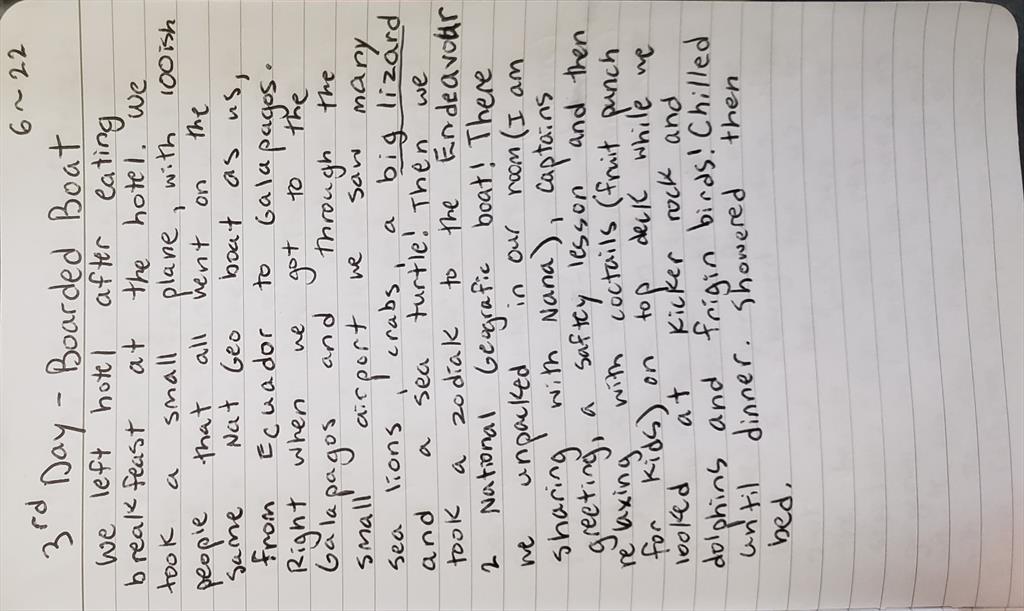 6~22
3rd Day - Boarded Boat
We left hotel after eating
breakfeast at the hotel. We
took a small plane, with 100ish
people that all went on the
same Nat Geo boat as us,
from Ecuador to Galapagos.
Right when we got to the
Galapagos and through the
small airport we saw many
sea lions, crabs, a big lizard
and a sea turtle! Then we
took a zodiak to the Endeavour
2 National Geografic boat! There
we unpacked in our room (I am
sharing with Nana), captains
greeting, a saftey lesson and then
relaxing with coctails (fruit punch
for kids) on top deck while we
looked at Kicker rock and
dolphins and frigin birds! Chilled
until dinner. Showered then
bed.